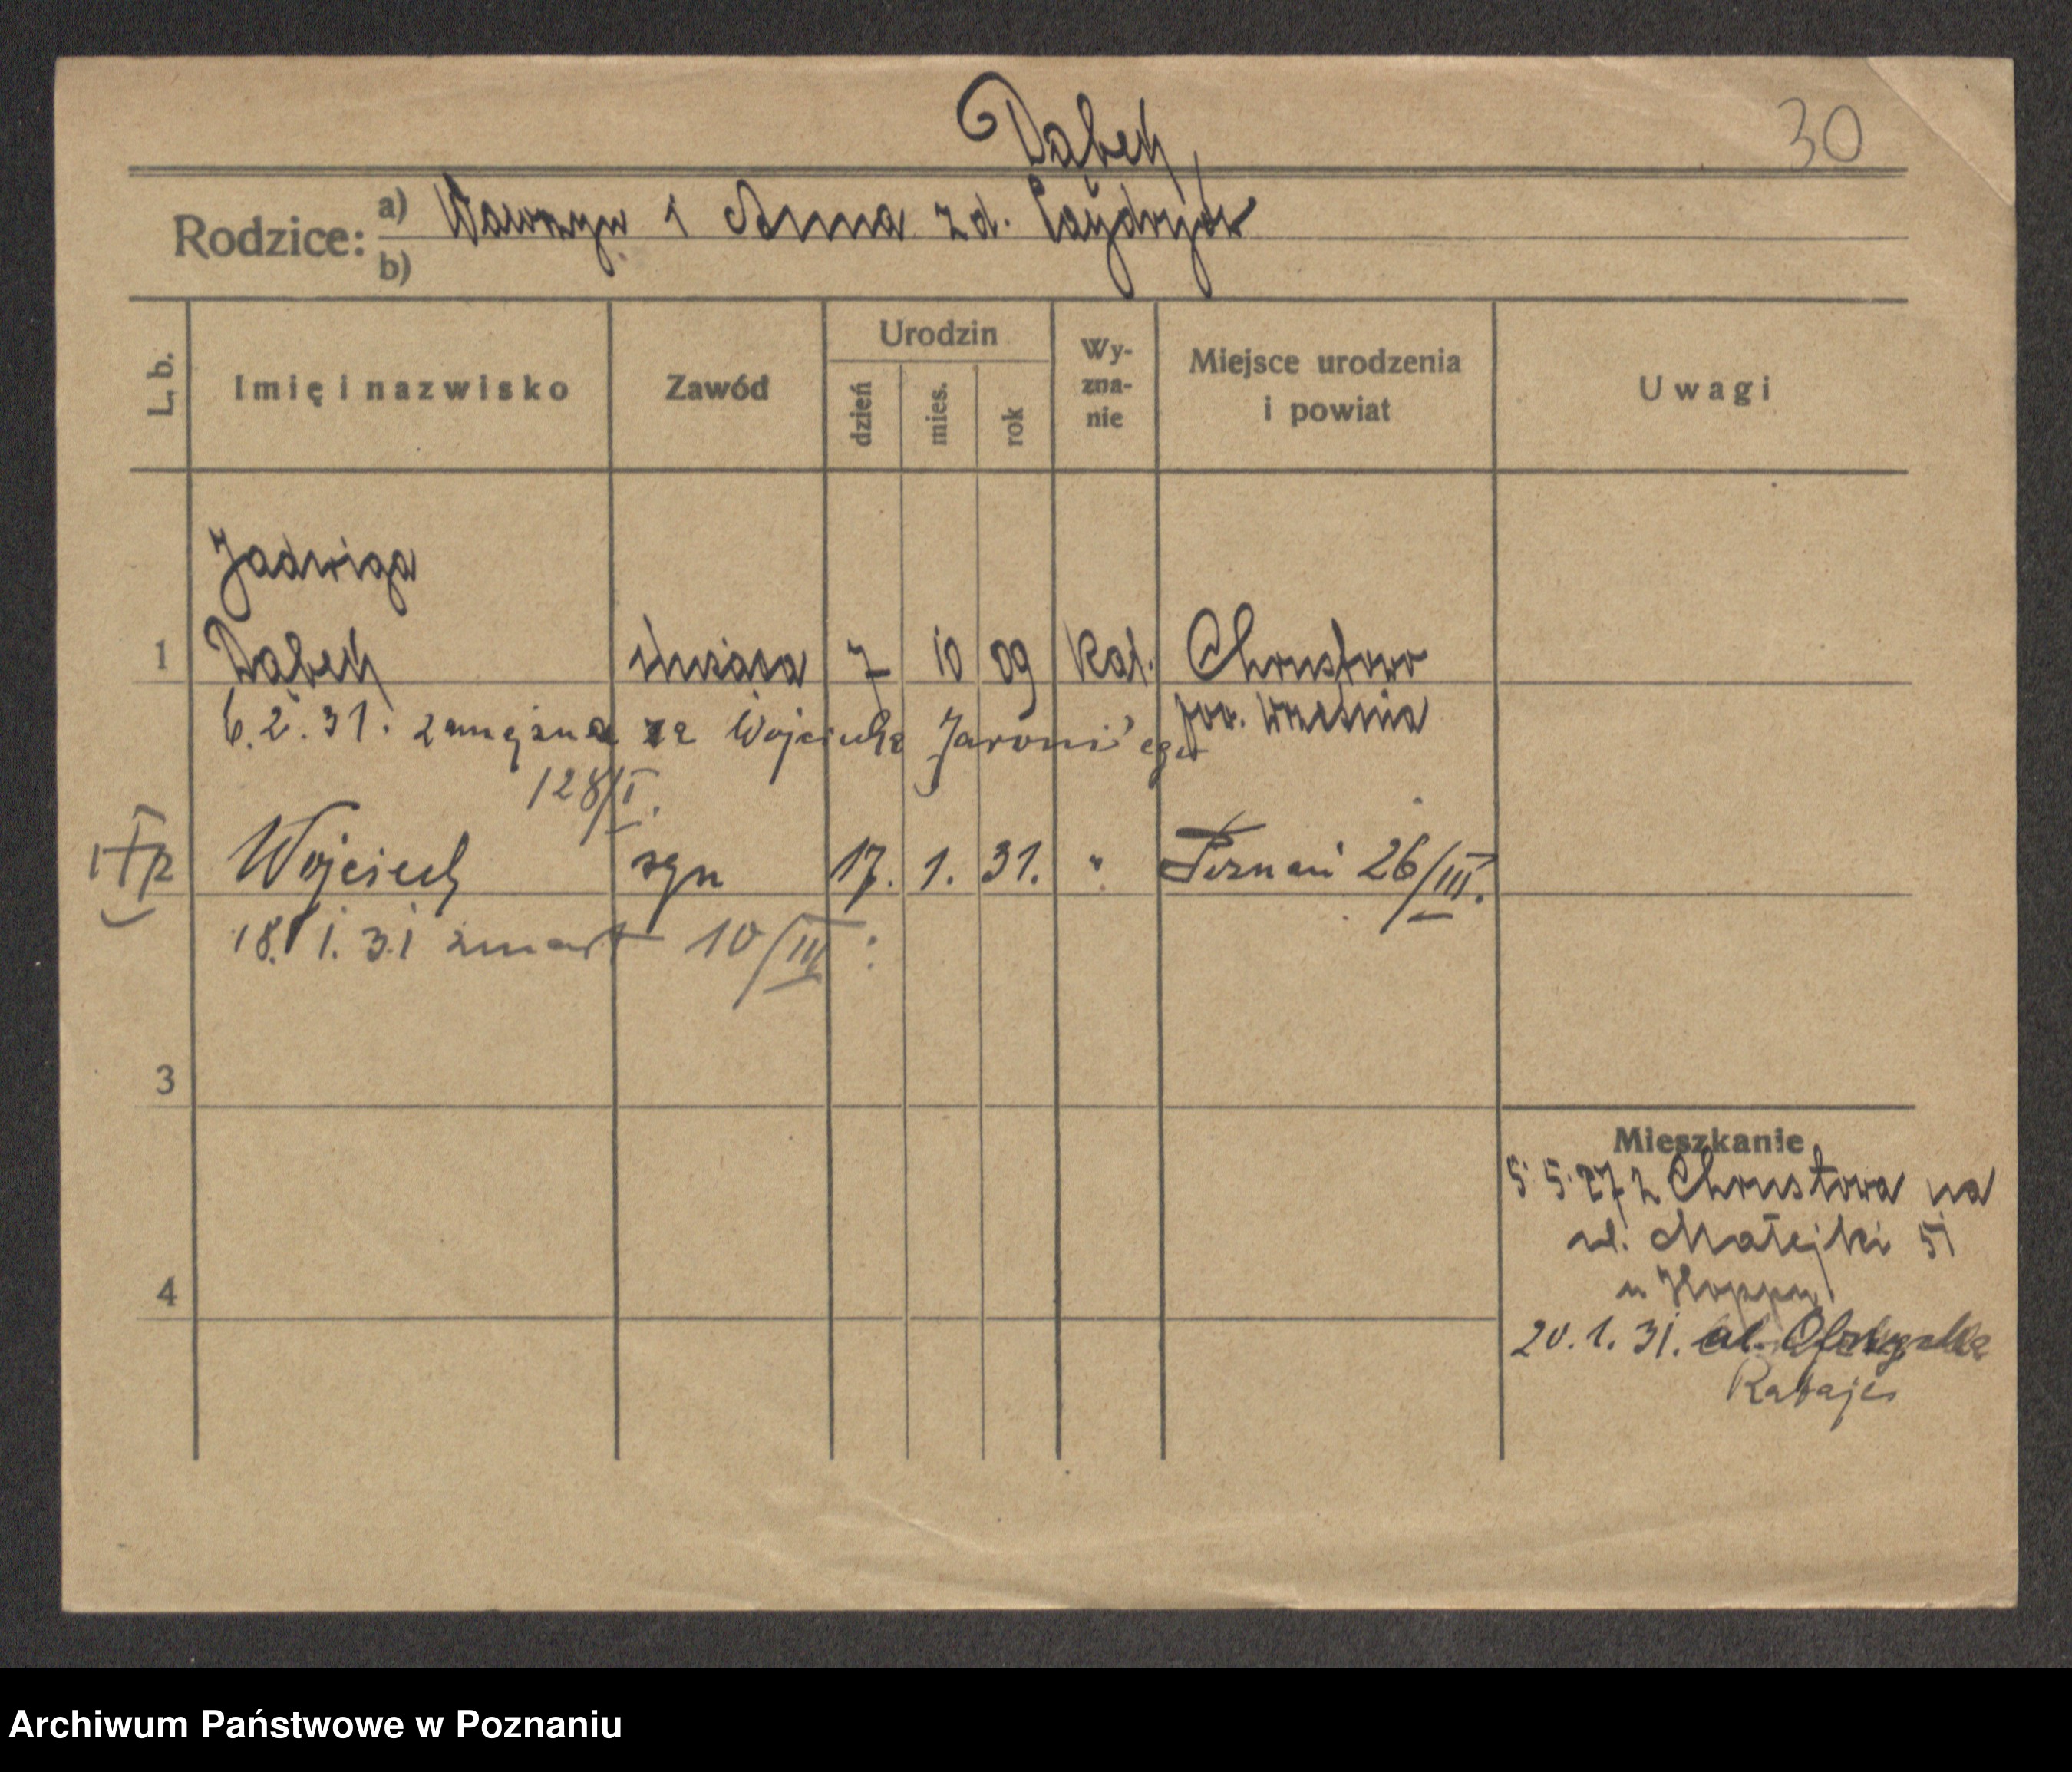 Dąbek
30
Rodzice: a) Wawrzyn i Anna z d.
b)
L. b.
Imię i nazwisko
Zawód
Urodzin
dzień
mies.
rok
Wy-
zna-
nie
Miejsce urodzenia
i powiat
Uwagi
Jadwiga
1 Dąbek służąca 7 10 09 kat. Chrustowo
pow. Września
6.2.31. zamężna za Wojciecha
128/I.
Wojciech syn 17. 1. 31. " Poznań 26/III.
18. 1. 31 zmarł 10/III.
3
4
Mieszkanie
5.5.27 z Chrustowa na
ul. Matejki 51
u Hoppy
20.1.31. ul. Obrzycka
Rataje
Archiwum Państwowe w Poznaniu